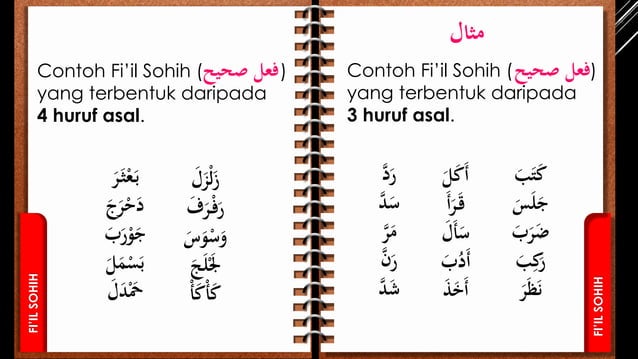 Contoh Fi'il Sohih (فعل صحيح)
yang terbentuk daripada
4 huruf asal.
زَلْزَلَ بَعْثَرَ
رَفْرَفَ دَحْرَجَ
وَسْوَسَ جَوْرَبَ
لَجْلَجَ بَسْمَلَ
كَأْكَأْ حَمْدَلَ
FI'IL SOHIH
مثال
Contoh Fi'il Sohih (فعل صحيح)
yang terbentuk daripada
3 huruf asal.
كَتَبَ أَكَلَ رَدَّ
جَلَسَ قَرَأَ سَدَّ
ضَرَبَ سَأَلَ مَرَّ
رَكِبَ أَدُبَ رَنَّ
نَظَرَ أَخَذَ شَدَّ
FI'IL SOHIH